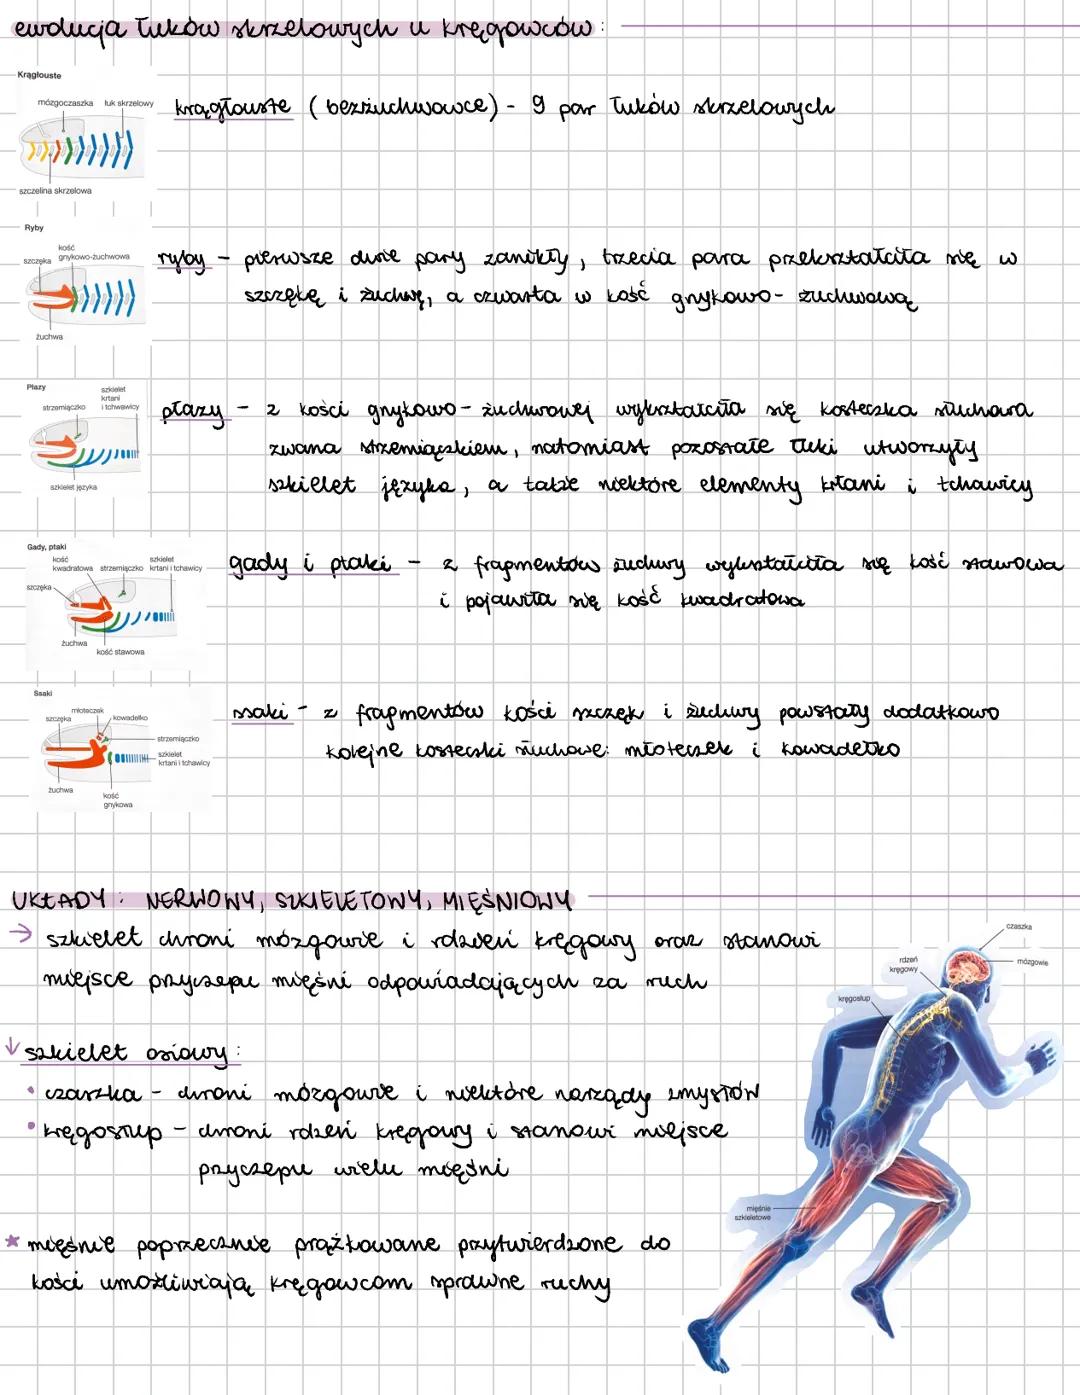 ewolucja łuków skrzelowych u kręgowców:
Krągłouste
mózgoczaszka łuk skrzelowy
szczelina skrzelowa
krągłouste (bezżuchwowce) - 9 par łuków skrzelowych
Ryby
kość
szczęka gnykowo-żuchwowa
żuchwa
ryby - pierwsze dwie pary zanikły, trzecia para przekształciła się w
szczękę i żuchwę, a czwarta w kość gnykowo-żuchwową
Płazy
szkielet
krtani
strzemiączko i tchwawicy
szkielet języka
płazy - z kości gnykowo-żuchwowej wykształciła się kosteczka słuchowa
zwana strzemiączkiem, natomiast pozostałe łuki utworzyły
szkielet języka, a także niektóre elementy krtani i tchawicy
Gady, ptaki
kość szkielet
kwadratowa strzemiączko krtani i tchawicy
szczęka
żuchwa
kość stawowa
gady i ptaki - z fragmentów żuchwy wykształciła się kość stawowa
i pojawiła się kość kwadratowa
Ssaki
młoteczek
szczęka kowadełko
strzemiączko
szkielet
krtani i tchawicy
żuchwa
kość
gnykowa
ssaki - z fragmentów kości szczęk i żuchwy powstały dodatkowo
kolejne kosteczki słuchowe: młoteczek i kowadełko
UKŁADY: NERWOWY, SZKIELETOWY, MIĘŚNIOWY
→ szkielet chroni mózgowie i rdzeń kręgowy oraz stanowi
miejsce przyczepu mięśni odpowiadających za ruch
↓ szkielet osiowy:
• czaszka - chroni mózgowie i niektóre narządy zmysłów
• kręgosłup - chroni rdzeń kręgowy i stanowi miejsce
przyczepu wielu mięśni
★ mięśnie poprzecznie prążkowane przytwierdzone do
kości umożliwiają kręgowcom sprawne ruchy
czaszka
rdzeń
kręgowy
mózgowie
kręgosłup
mięśnie
szkieletowe